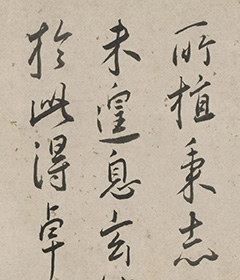 所植秉志
未遑息玄
於此得卓